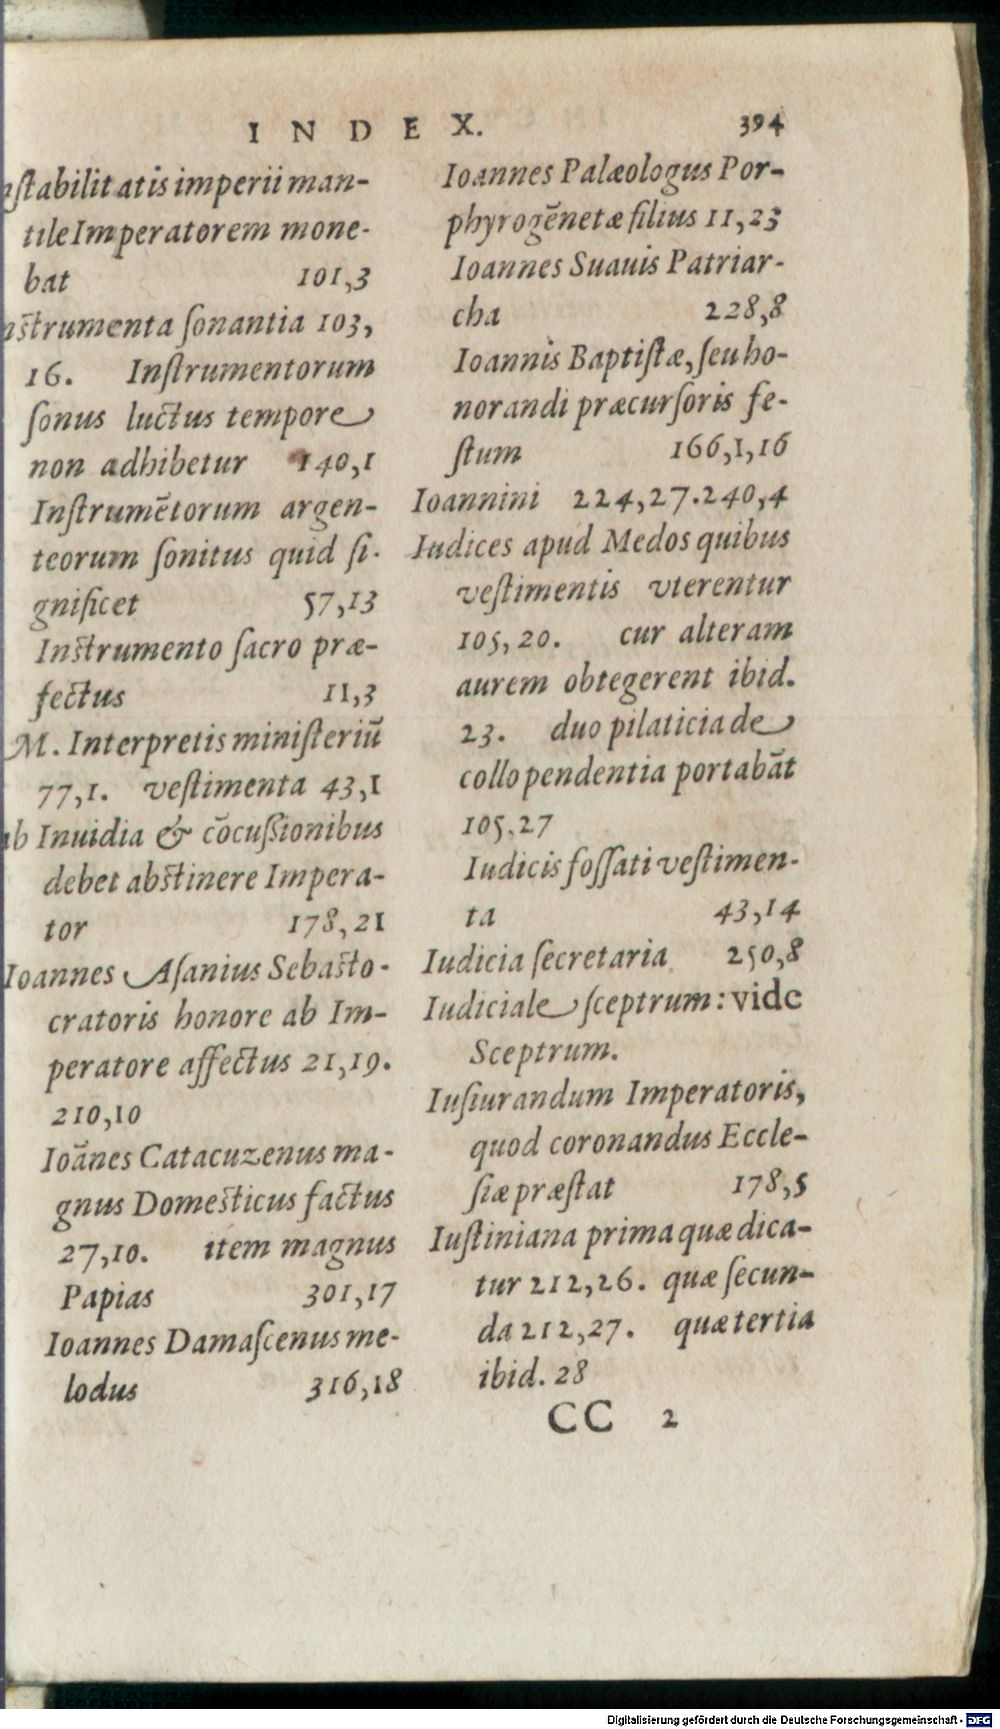 INDEX. 394
nſtabilitatis imperii man-
tile Imperatorem mone-
bat 101,3
nſtrumenta ſonantia 103,
16. Inſtrumentorum
ſonus luctus tempore
non adhibetur 140,1
Inſtrumẽtorum argen-
teorum ſonitus quid ſi-
gnificet 57,13
Inſtrumento ſacro præ-
fectus 11,3
M. Interpretis miniſteriũ
77,1. veſtimenta 43,1
ab Inuidia & cõcuſſionibus
debet abſtinere Impera-
tor 178,21
Ioannes Aſanius Sebaſto-
cratoris honore ab Im-
peratore affectus 21,19.
210,10
Ioãnes Catacuzenus ma-
gnus Domeſticus factus
27,10. item magnus
Papias 301,17
Ioannes Damaſcenus me-
lodus 316,18
Ioannes Palæologus Por-
phyrogẽnetæ filius 11,23
Ioannes Suauis Patriar-
cha 228,8
Ioannis Baptiſtæ, ſeu ho-
norandi præcurſoris fe-
ſtum 166,1,16
Ioannini 224,27.240,4
Iudices apud Medos quibus
veſtimentis vterentur
105,20. cur alteram
aurem obtegerent ibid.
23. duo pilaticia de
collo pendentia portabãt
105.27
Iudicis foſſati veſtimen-
ta 43,14
Iudicia ſecretaria 250,8
Iudiciale ſceptrum: vide
Sceptrum.
Iuſiurandum Imperatoris,
quod coronandus Eccle-
ſiæ præſtat 178,5
Iuſtiniana prima quæ dica-
tur 212,26. quæ ſecun-
da 212,27. quæ tertia
ibid. 28
CC 2
Digitalisierung gefördert durch die Deutsche Forschungsgemeinschaft - DFG